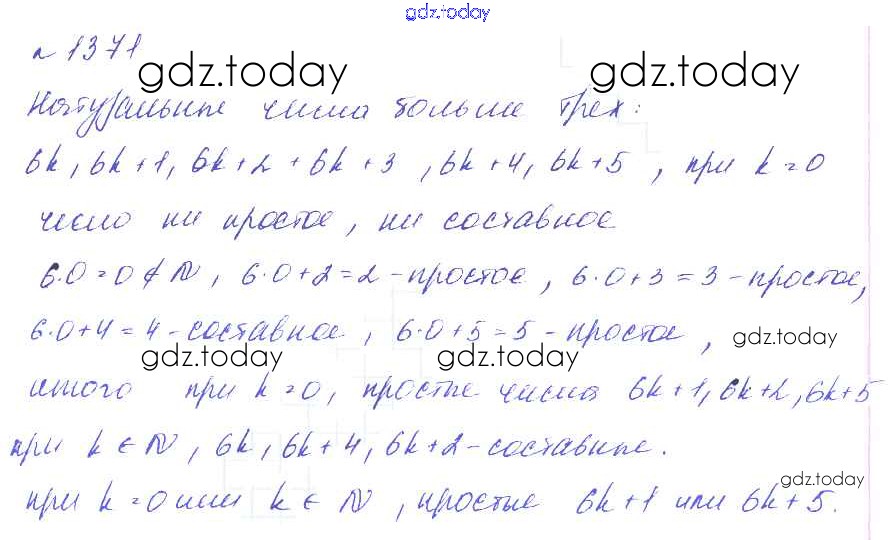 gdz.today
№ 1371
gdz.today gdz.today
Натуральные числа больше трех:
6k, 6k+1, 6k+2 + 6k+3, 6k+4, 6k+5, при k=0
число ни простое, ни составное
6·0=0 ∉ N, 6·0+2=2-простое, 6·0+3=3-простое,
6·0+4=4-составное, 6·0+5=5-простое,
gdz.today
gdz.today gdz.today
итого при k=0, простые числа 6k+1, 6k+2, 6k+5
при k ∈ N, 6k, 6k+4, 6k+2-составные.
gdz.today
при k=0 или k ∈ N, простые 6k+1 или 6k+5.